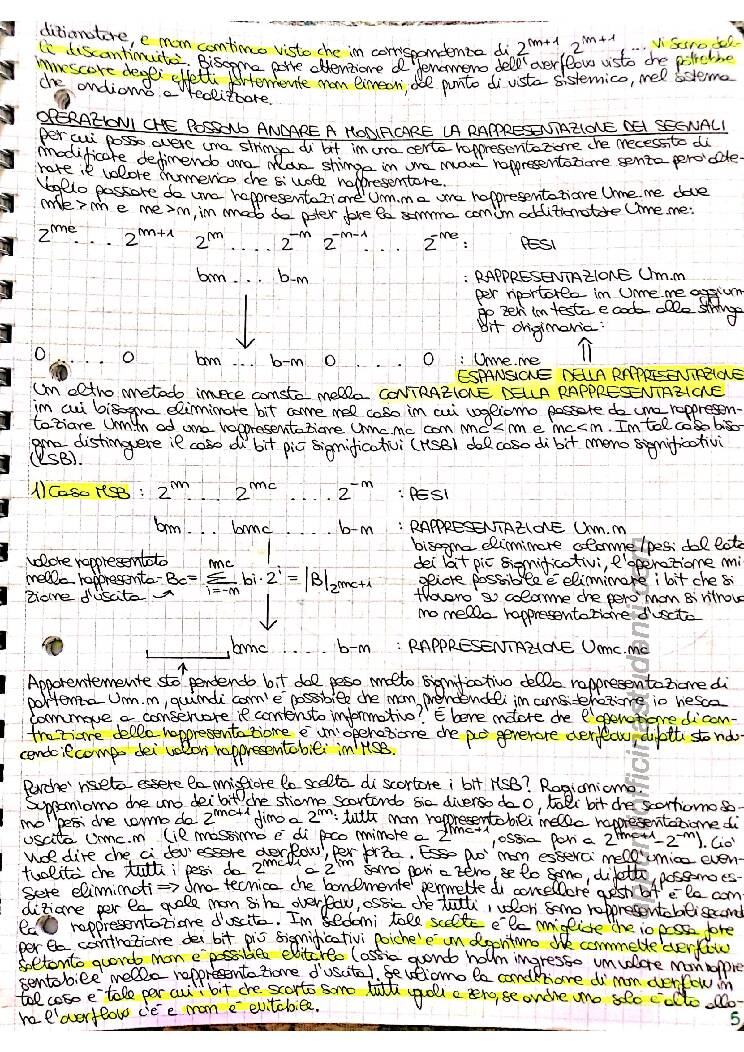 dizionatore, e non continuo visto che in corrispondenza di 2^{m+1}, 2^{m+1}, ... vi sono del-
le discontinuità. Bisogna porre attenzione al fenomeno dell'overflow visto che potrebbe
innescare degli effetti fortemente non lineari, dal punto di vista sistemico, nel sistema
che andiamo a realizzare.
OPERAZIONI CHE POSSONO ANDARE A MODIFICARE LA RAPPRESENTAZIONE DEI SEGNALI
per cui posso avere una stringa di bit in una certa rappresentazione che necessito di
modificare definendo una nuova stringa in una nuova rappresentazione senza però alte-
rare il valore numerico che si vuole rappresentare.
Voglio passare da una rappresentazione Um.n a una rappresentazione Ume.ne dove
me>m e ne>n, in modo da poter fare la somma con un addizionatore Ume.ne:
2^{me} .... 2^{m+1} 2^m .... 2^{-n} 2^{-n-1} .... 2^{-ne} : PESI
bm ... b-n : RAPPRESENTAZIONE Um.n
per riportarla in Ume.ne aggiun-
go zeri in testa e coda alla stringa
bit originaria:
0 .... 0 bm ... b-n 0 .... 0 : Ume.ne
ESPANSIONE DELLA RAPPRESENTAZIONE
Un altro metodo invece consta nella CONTRAZIONE DELLA RAPPRESENTAZIONE
in cui bisogna eliminare bit come nel caso in cui vogliamo passare da una rappresen-
tazione Um.n ad una rappresentazione Umc.nc con mc<m e nc<n. In tal caso biso-
gna distinguere il caso di bit più significativi (MSB) dal caso di bit meno significativi
(LSB).
1) Caso MSB : 2^m .... 2^{mc} .... 2^{-n} : PESI
bm .... bmc .... b-n : RAPPRESENTAZIONE Um.n
bisogna eliminare colonne/pesi dal lato
dei bit più significativi, l'operazione mi-
gliore possibile è eliminare i bit che si
trovano su colonne che però non si ritrova-
no nella rappresentazione d'uscita
valore rappresentato
nella rappresenta-
zione d'uscita
Bc = Σ_{i=-n}^{mc} bi·2^i = |B|_{2^{mc+1}}
bmc ... b-n : RAPPRESENTAZIONE Umc.nc
Apparentemente sto perdendo bit dal peso molto significativo della rappresentazione di
partenza Um.n, quindi com'è possibile che non prendendoli in considerazione io riesca
comunque a conservare il contenuto informativo? È bene notare che l'operazione di con-
trazione della rappresentazione è un'operazione che può generare overflow, difatti sto ridu-
cendo il campo dei valori rappresentabili in MSB.
Perché risulta essere la migliore la scelta di scartare i bit MSB? Ragioniamo.
Supponiamo che uno dei bit che stiamo scartando sia diverso da 0, tali bit che scartiamo so-
no i pesi che vanno da 2^{mc+1} fino a 2^m: tutti non rappresentabili nella rappresentazione di
uscita Umc.n (il massimo è di poco minore a 2^{mc+1}, ossia pari a 2^{mc+1}-2^{-n}). Ciò
vuol dire che ci dev'essere overflow, per forza. Esso può non esserci nell'unica even-
tualità che tutti i pesi da 2^{mc+1} a 2^m sono pari a zero, se lo sono, difatti, possono es-
sere eliminati => una tecnica che banalmente permette di cancellare questi bit è la con-
dizione per la quale non si ha overflow, ossia che tutti i valori sono rappresentabili secondo
la rappresentazione d'uscita. tale scelta è la migliore che io possa fare
per la contrazione dei bit più significativi poiché è un algoritmo che commette overflow
soltanto quando non è possibile evitarlo (ossia quando ho in ingresso un valore non rappre-
sentabile nella rappresentazione d'uscita), se vediamo la condizione di non overflow in
tal caso è tale per cui i bit che scarto sono tutti uguali a zero, se anche uno solo è alto allo-
ra l'overflow c'è e non è evitabile.
5